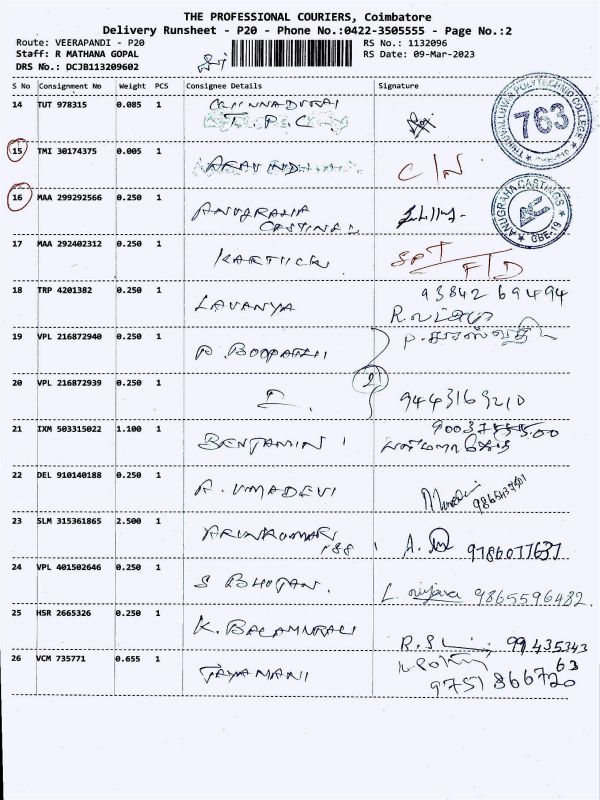 THE PROFESSIONAL COURIERS, Coimbatore
Delivery Runsheet - P20 - Phone No.:0422-3505555 - Page No.:2
Route: VEERAPANDI - P20 RS No.: 1132096
Staff: R MATHANA GOPAL RS Date: 09-Mar-2023
DRS No.: DCJB113209602
S No Consignment No Weight PCS Consignee Details Signature
14 TUT 978315 0.085 1 CHINNADURAI
T.P.C
THIRUVALLUVAR POLYTECHNIC COLLEGE
763
15 TMI 30174375 0.005 1 ARAVIND C/N
16 MAA 299292566 0.250 1 ANUGRAHA
CASTINGS
ANUGRAHA CASTINGS
CBE-19
17 MAA 292402312 0.250 1 KARTHICK SPT
FTD
18 TRP 4201382 0.250 1 LAVANYA 93842 69494
19 VPL 216872940 0.250 1 P. BOOPATHI
20 VPL 216872939 0.250 1 2 9443169210
21 IXM 503315022 1.100 1 BENJAMIN
22 DEL 910140188 0.250 1 A. UMADEVI
23 SLM 315361865 2.500 1 ARUNKUMAR 9786077637
24 VPL 401502646 0.250 1 S BHOJAN. 9865596482.
25 HSR 2665326 0.250 1 K. BALAMURALI 99435343
63
26 VCM 735771 0.655 1 JAYAMANI 9751866720